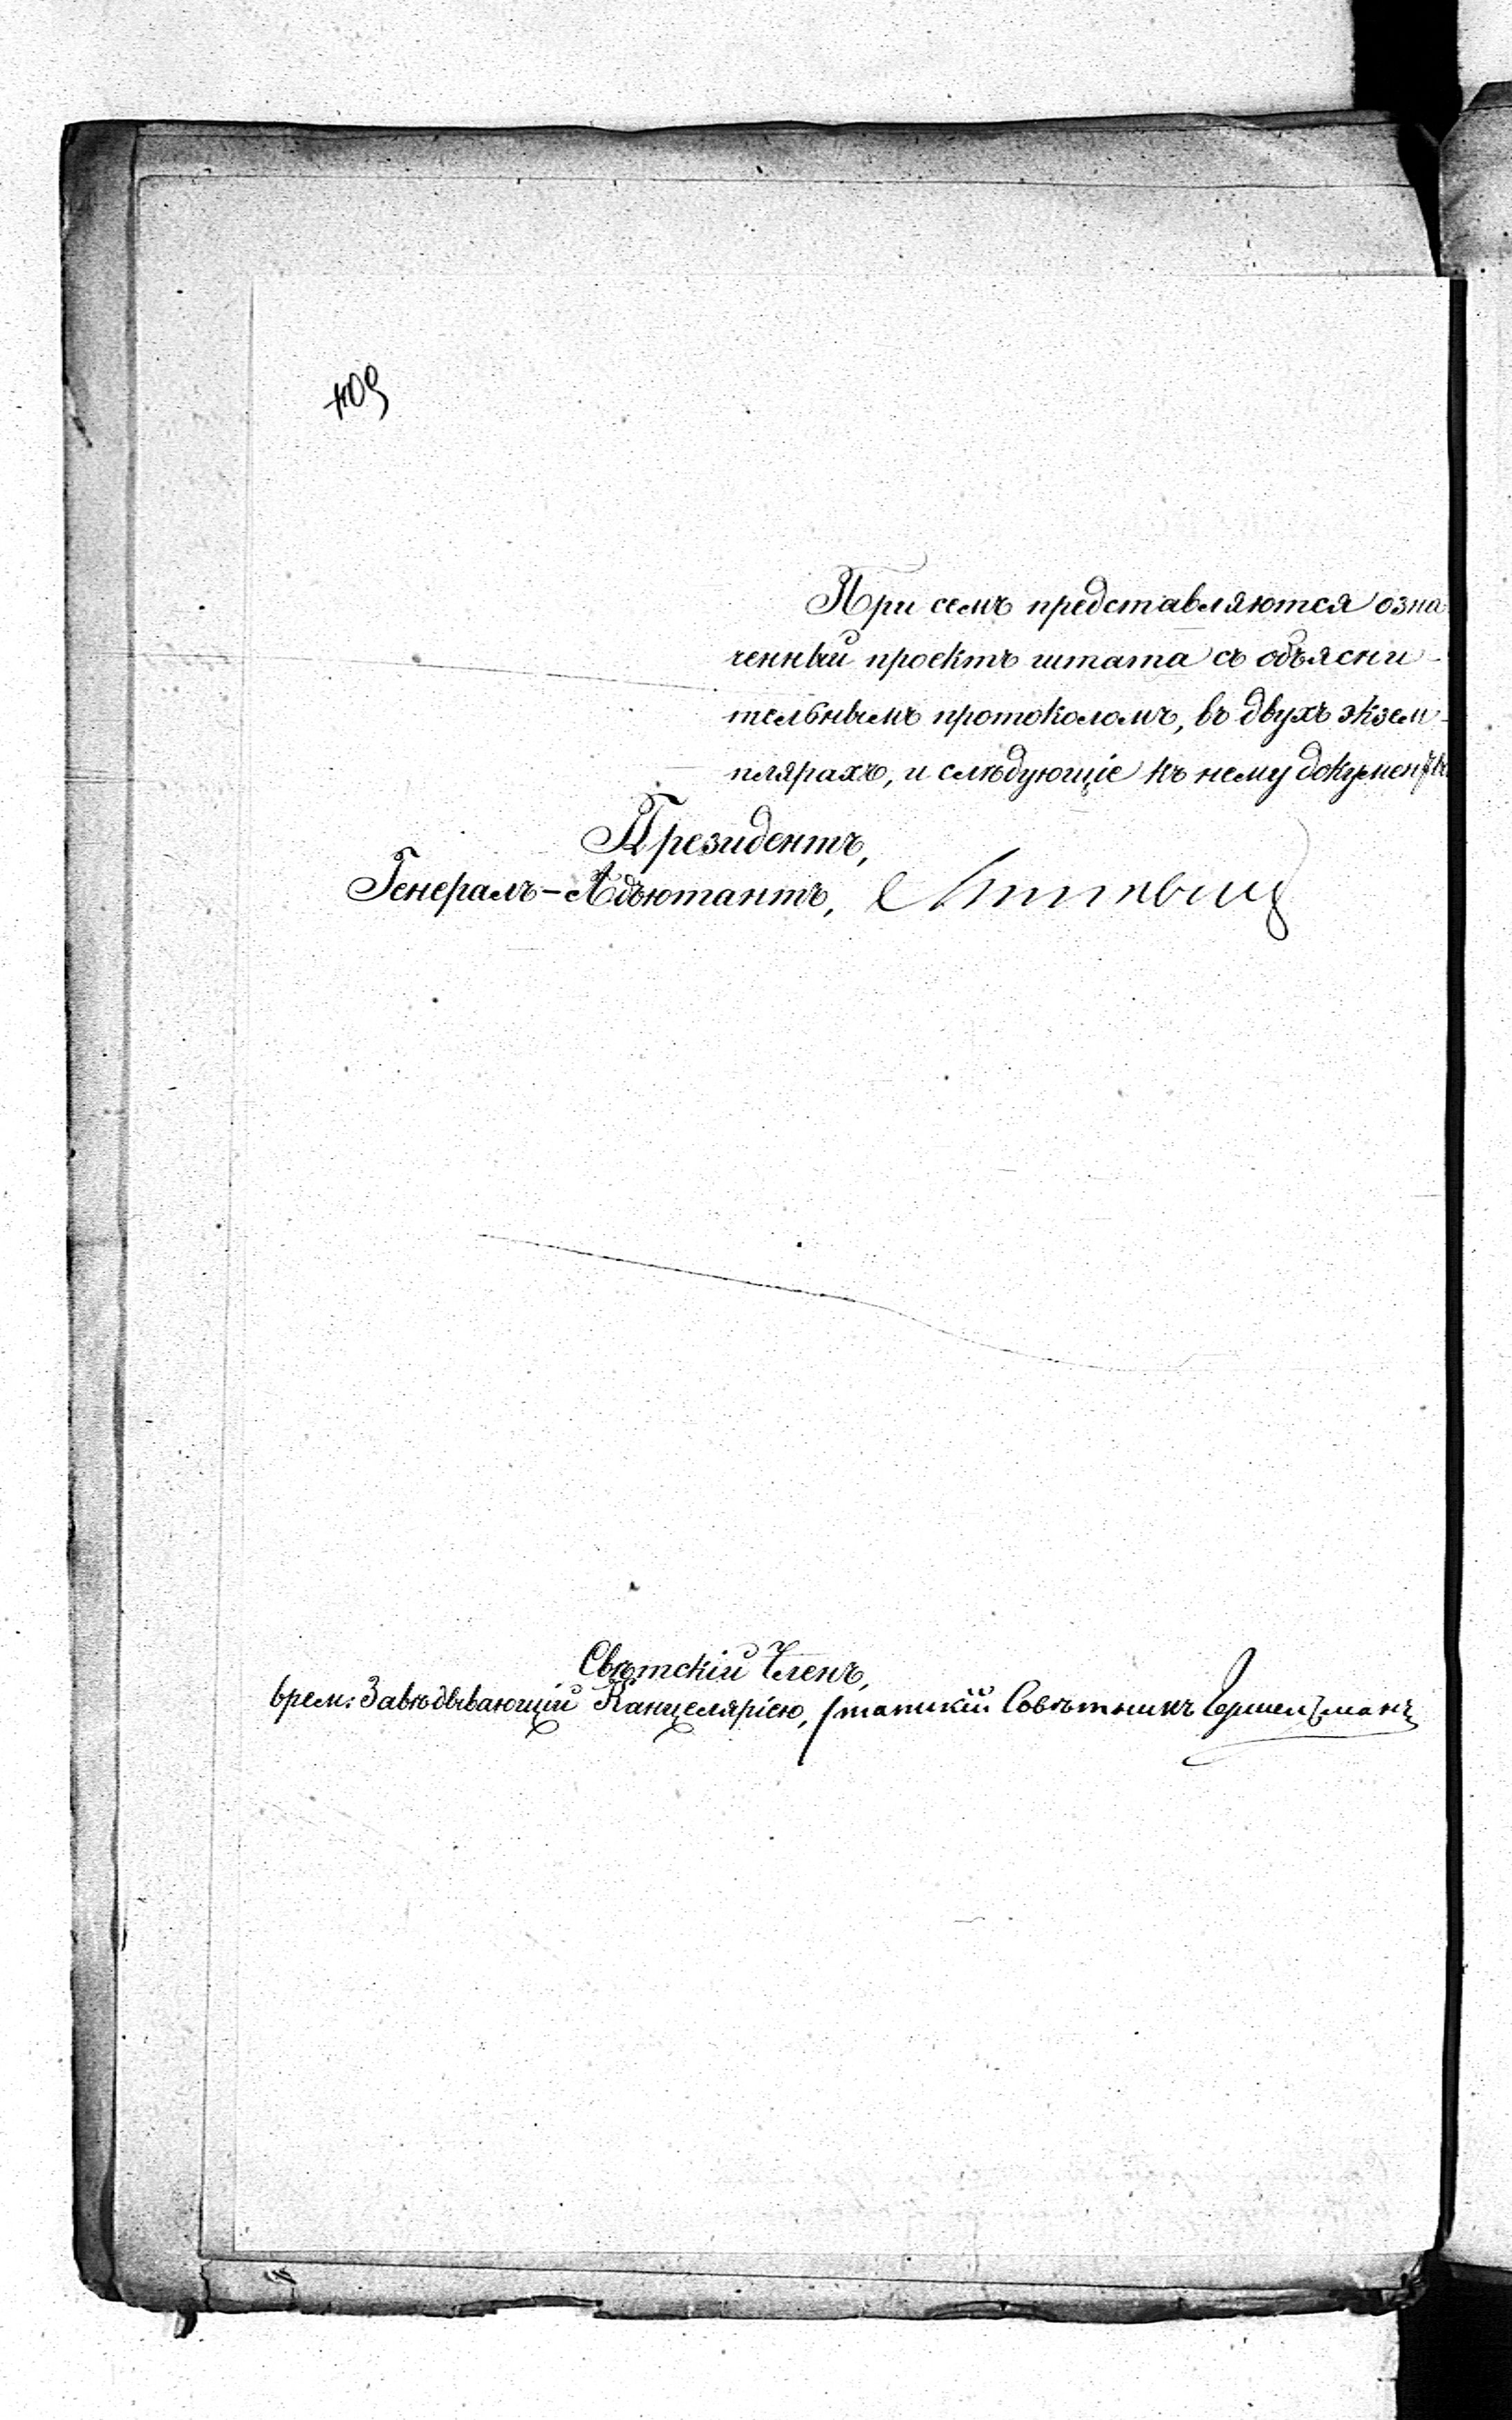 109
При семъ представляются озна
ченный проектъ штата съ объясни-
тельнымъ протоколомъ, въ двухъ экзем-
плярахъ, и слѣдующіе къ нему документы
Президентъ,
Генералъ-Адъютантъ,
Свѣтскій Членъ,
врем: Завѣдывающій Канцеляріею, Статскій Совѣтникъ Гершельманъ